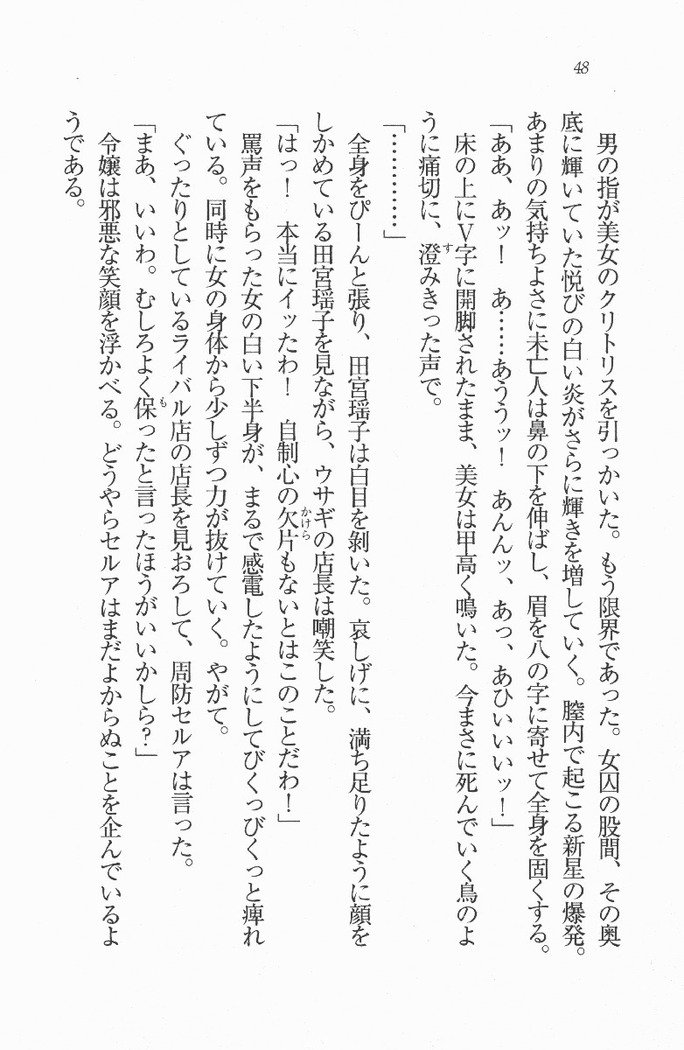 48
男の指が美女のクリトリスを引っかいた。もう限界であった。女囚の股間、その奥
底に輝いていた悦びの白い炎がさらに輝きを増していく。膣内で起こる新星の爆発。
あまりの気持ちよさに未亡人は鼻の下を伸ばし、眉を八の字に寄せて全身を固くする。
「ああ、あッ！　あ……あううッ！　あんんッ、あっ、あひいいいッ！」
床の上にV字に開脚されたまま、美女は甲高く鳴いた。今まさに死んでいく鳥のよ
うに痛切に、澄す みきった声で。
「…………」
全身をぴーんと張り、田宮瑶子は白目を剝いた。哀しげに、満ち足りたように顔を
しかめている田宮瑶子を見ながら、ウサギの店長は嘲笑した。
「はっ！　本当にイッたわ！　自制心の欠片かけらもないとはこのことだわ！」
罵声をもらった女の白い下半身が、まるで感電したようにしてびくっびくっと痺れ
ている。同時に女の身体から少しずつ力が抜けていく。やがて。
ぐったりとしているライバル店の店長を見おろして、周防セルアは言った。
「まあ、いいわ。むしろよく保もったと言ったほうがいいかしら？」
令嬢は邪悪な笑顔を浮かべる。どうやらセルアはまだよからぬことを企んでいるよ
うである。